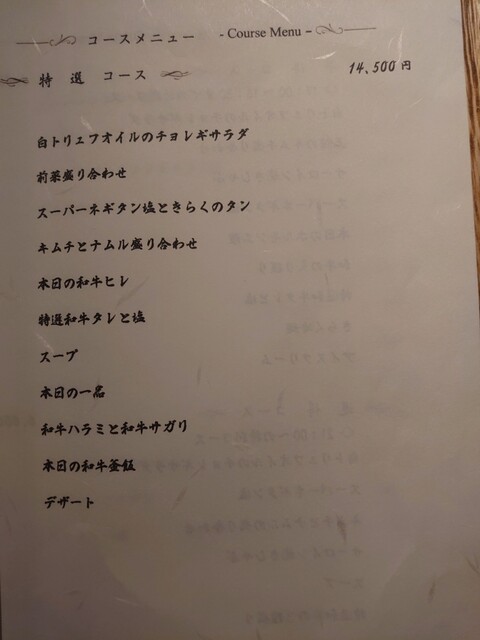 コースメニュー - Course Menu -
特 選 コース 14,500円
白トリュフオイルのチョレギサラダ
前菜盛り合わせ
スーパーネギタン塩ときらくのタン
キムチとナムル盛り合わせ
本日の和牛ヒレ
特選和牛タレと塩
スープ
本日の一品
和牛ハラミと和牛サガリ
本日の和牛釜飯
デザート